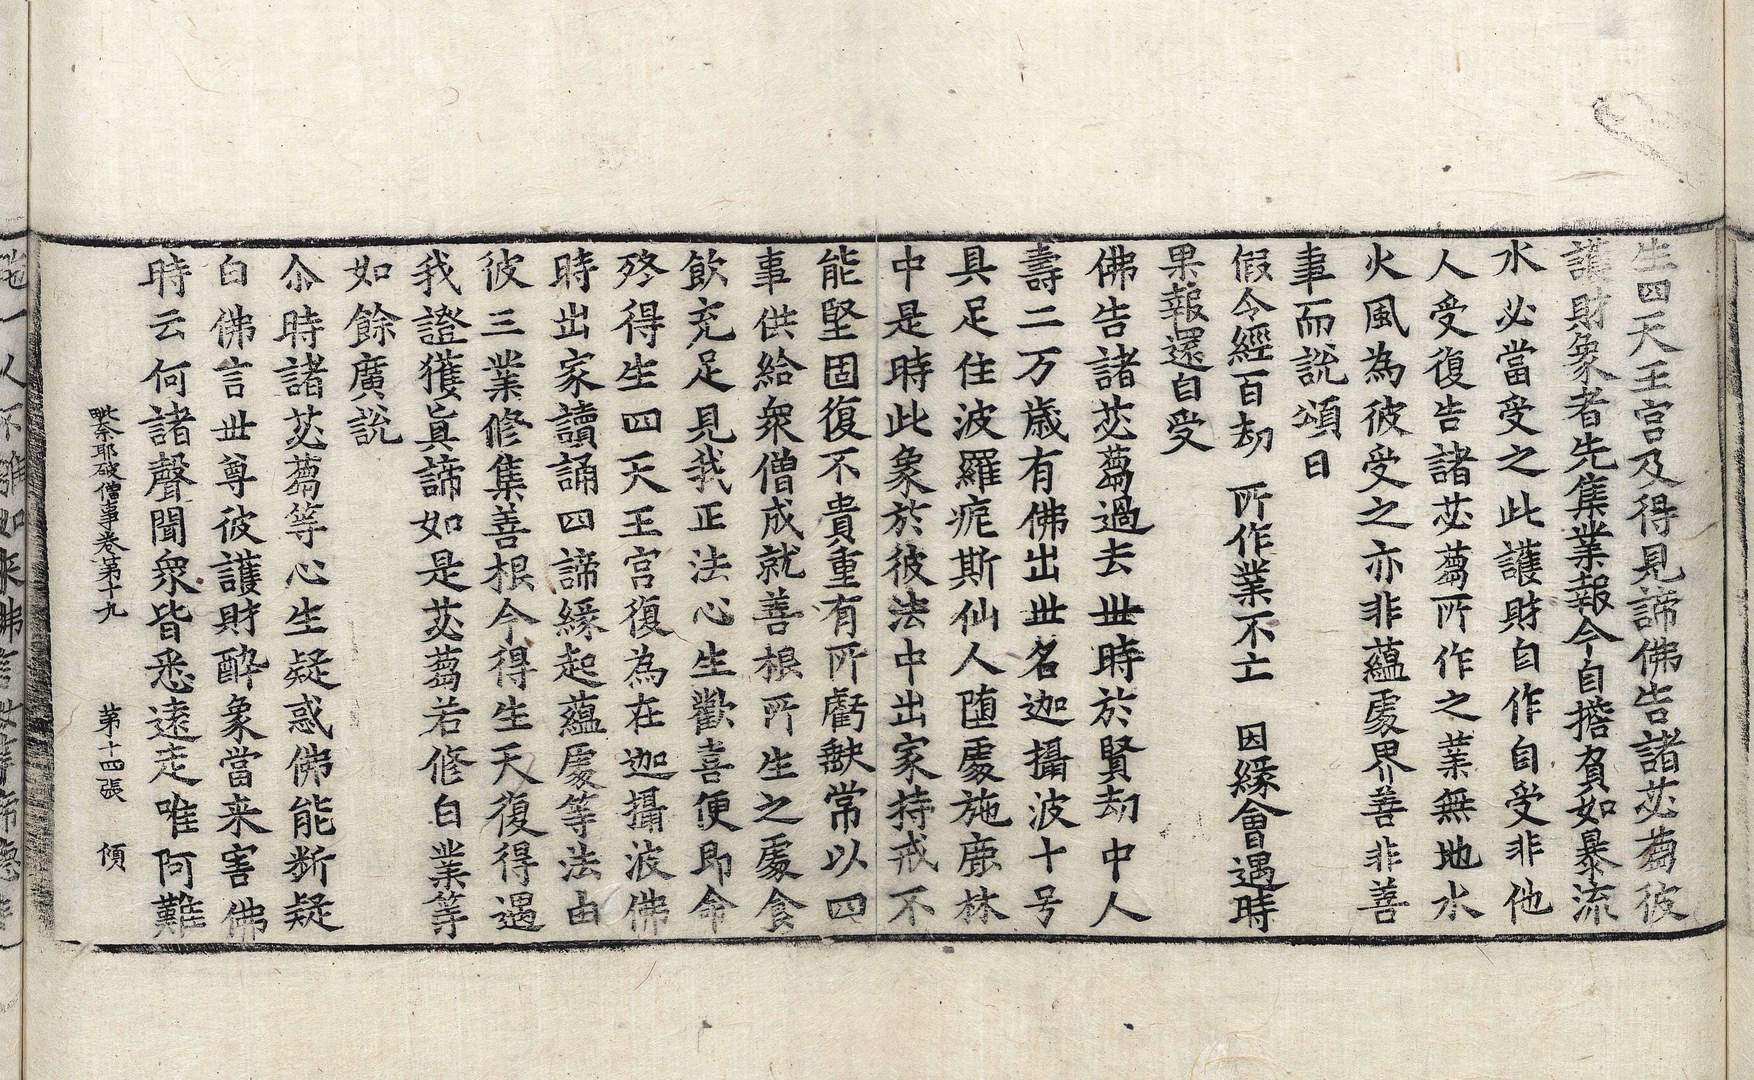 生四天王宮及得見諦佛告諸苾蒭彼
護財象者先集業報今自擔負如暴流
水必當受之此護財自作自受非他
人受復告諸苾蒭所作之業無地水
火風為彼受之亦非蘊處界善非善
事而說頌曰
假令經百劫　所作業不亡　因緣會遇時
果報還自受
佛告諸苾蒭過去丗時於賢劫中人
壽二万歲有佛出丗名迦攝波十号
具足住波羅痆斯仙人墮處施鹿林
中是時此象於彼法中出家持戒不
能堅固復不貴重有所虧缺常以四
事供給衆僧成就善根所生之處食
飲充足見我正法心生歡喜便即命
終得生四天王宮復為在迦攝波佛
時出家讀誦四諦緣起蘊處等法由
彼三業修集善根今得生天復得遇
我證獲真諦如是苾蒭若修白業等
如餘廣說
尒時諸苾蒭等心生疑惑佛能斷疑
白佛言丗尊彼護財醉象當来害佛
時云何諸聲聞衆皆悉遠走唯阿難
毗奈耶破僧事卷第十九　第十四張　傾